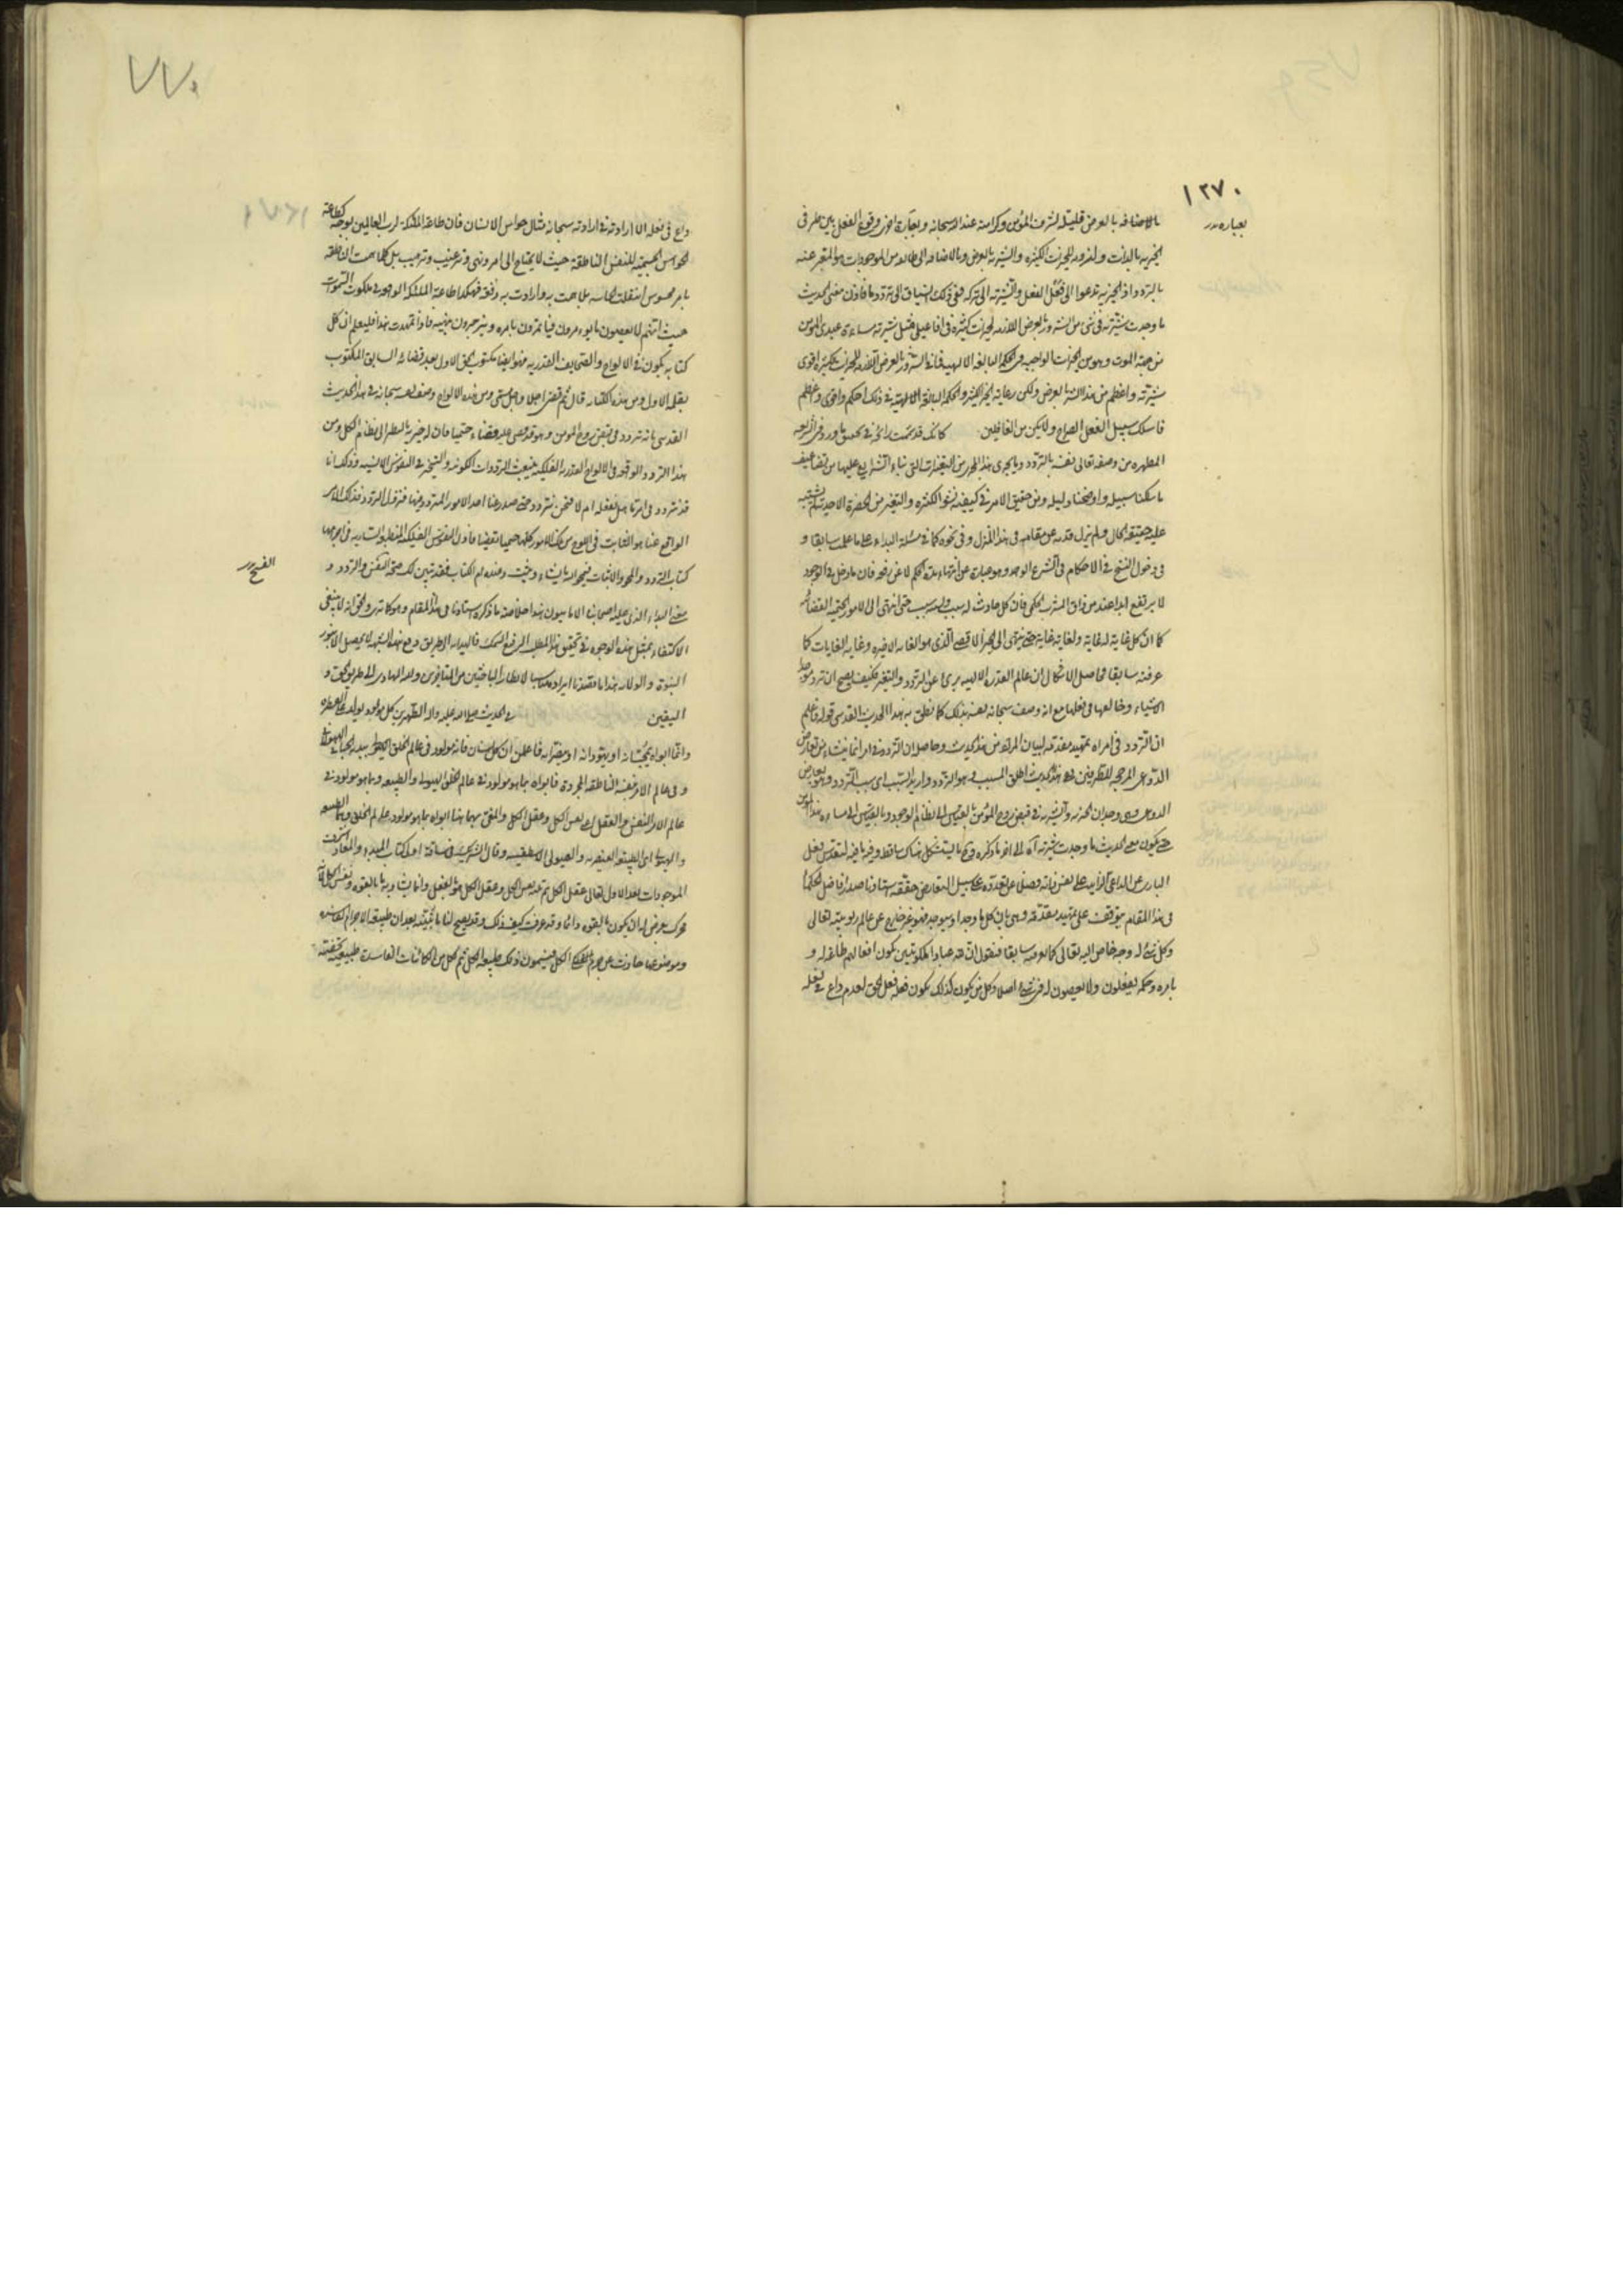 ١٢٧٠
بالاضافه بالعرض قليلة لشرف المؤمن وكرامته عند الله سبحانه وبعبارة اخرى وقوع الفعل بين طرفى
الخيريه بالذات ولزوم الخيرات الكثيره والشرية بالعرض وبالاضافه الى طائفه من الموجودات هو المعبر عنه
بالتردد اذ الخيرية تدعوا الى فعل الفعل والشرية الى تركه ففى ذلك انسياق الى تردد ما فاذن معنى الحديث
ما وجدت شرية فى شئ من الشرور بالعرض اللازمه لخيرات كثيره فى افاعيلى مثل شرية مساءة عبدى المؤمن
من جهة الموت وهو من الخيرات الواجبه فى الحكمة البالغه الالهيه فما فى الشرور بالعرض اللازمه للخيرات الكثيرة اقوى
شرية واعظم من هذا الشر بالعرض ولكن رعاية الخير الكثير والحكمه البالغة الالهية فى ذلك احكم واقوى واعظم
فاسلك سبيل العقل الصراح ولا تكن من الغافلين كانك قد شممت رائحة فى تحقيق ما ورد فى الشريعه
المطهره من وصفه تعالى نفسه بالتردد وما يجرى هذا المجرى من التغيرات التى
ما سلكنا سبيله واوضحنا دليله ومن حقيق الامر فى كيفية نشو الكثره والتغير من الحضرة الاحدية لم يشتبه
عليه حقيقة الحال ولم يزل قدمه عن مقامه فى هذا المنزل وفى نحوه كما فى مسئلة البداء على ما علمت سابقا و
فى دخول النسخ فى الاحكام فى الشرع الواحد وهو عبارة عن انتهاء مدة الحكم لا عن رفعه فان ما دخل فى الوجود
لا يرتفع ابدا عند من ذاق المشرب الحكمى فان كل حادث له سبب ولسببه سبب حتى انتهى الى الامور الحتمية القضائيه
كما ان كل غاية له غاية ولغايته غاية حتى ينتهى الى الخير الاقصى الذى هو الغاية الاخيره وغاية الغايات كما
عرفته سابقا حاصل الاشكال ان عالم القدرة الالهيه برئ عن التردد والتغير فكيف يصح ان تردد موجد
الاشياء وخالقها فى فعلها مع انه وصف سبحانه نفسه بذلك كما نطق به هذا الحديث القدسى قوله فاعلم
ان التردد فى امر اه تمهيد مقدمه لبيان المراد من هذا الحديث وحاصله ان التردد فى امر انما ينشاء من تعارض
الدواعى المرجحه للطرفين ففى هذا الحديث اطلق المسبب وهو التردد واريد السبب اى سبب التردد وهو تعارض
الداعى وهى وجدان الخيريه والشريه فى قبض روح المؤمن بالقياس الى نظام الوجود وبالقياس الى مساءة هذا المؤمن
حتى يكون معنى الحديث ما وجدت شرية آه الى اخر ما ذكره
البارى عن الداعى الزايد على نفس ذاته فضلا عن تعدده على سبيل التعارض حققه استادنا صدر افاضل الحكماء
فى هذا المقام يتوقف على تمهيد مقدمه وهى بان كل ما وجد او سيوجد فهو غير خارج عن عالم ربوبيته تعالى
وكل شئ له وجه خاص اليه تعالى كما عرفته سابقا فنقول ان لله عبادا ملكوتيين يكون افعالهم طاعة له و
بامره وحكمه يفعلون ولا يعصون له فى شئ اصلا وكل من يكون كذلك يكون فعله فعل الحق لعدم داع فى فعله
٧٧٠
داع فى فعله الا ارادته فى ارادته سبحانه مثال حواس الانسان فان طاعة الملئكة لرب العالمين بوجه كطاعة
الحواس الجسميه للنفس الناطقة حيث لا يحتاج الى امر ونهى وترغيب وترهيب بل كلما همت الناطقه
بامر محسوس امتثلت الحاسه بما همت به وارادت به دفعة فهكذا طاعة الملئكة الواقعه فى ملكوت السموات
حيث انهم لا يعصون ما يؤمرون فيأتمرون بامره وينزجرون بنهيه فاذا تمهدت هذا فليعلم ان كل
كتابه يكون فى الالواح والصحايف القدريه فهو ايضا مكتوب الحق الاول بعد قضائه السابق المكتوب
بقلمه الاول ومن هذه الكتابه قال ثم قضى اجلا واجل مسمى ومن هذه الالواح وصف نفسه سبحانه فى هذا الحديث
القدسى بانه تردد فى قبض روح المؤمن وهو قد قضى عليه قضاء حتميا فان له خيرية بالنظر الى نظام الكل ومن
هذا التردد الواقع فى الالواح القدريه الفلكيه ينبعث الترددات الكونيه والتحير فى النفوس الانسيه وذلك انا
قد نتردد فى امر ما هل نفعله ام لا فنحن نتردد حتى صدر عنا احد الامور المترددة فيها فتزول التردد فذلك الامر
الواقع عنا هو الثابت فى اللوح من تلك الامور كلها حتميا قضيا فاذن النفوس الفلكيه المنطبعه السارية فى اجرامها
كتاب التردد والمحو والاثبات فيمحو الله ما يشاء ويثبت وعنده ام الكتاب فقد تبين لك صحة النفس والتردد و
معنى البداء الذى عليه اصحابنا الاماميون هذا خلاصة ما ذكره استادنا فى هذا المقام وهو كما ترى والحق انه لا ينبغى
الاكتفاء بمثل هذه الوجوه فى تحقيق هذا المطلب الرفيع السمك
النبوة والولاية هذا ما قصدنا ايراده مناسبا لانظار الباحثين من المتأخرين والله الهادى الى طريق الحق و
اليقين فى الحديث صلى الله عليه واله الطاهرين كل مولود يولد على الفطره
وانما ابواه يمجسانه او يهودانه او ينصرانه فاعلمن ان كل انسان فانه مولود فى عالم الخلق
وفى عالم الامر بنفسه الناطقة المجردة فابواه بما هو مولود فى عالم الخلق الهيولى والطبيعه وبما هو مولود فى
عالم الامر النفس والعقل اى نفس الكل وعقل الكل والمعنى بهما هنا ابواه بما هو مولود عالم الخلق وهما الطبيعه
والهيولى اى الطبيعة العنصريه والهيولى الاسطقسيه وقال الشريك فى صناعة
الموجودات بعد الاول تعالى عقل الكل ثم نفس الكل وعقل الكل هو بالفعل
محرك يعرض له ان يكون بالقوه دائما وقد عرفت كيف ذلك وقد يصح لنا
وموضوعها حادث عن جرم الفلك الكل فيسمون ذلك طبيعة الكل ثم لكل من الكائنات الفاسدات طبيعة تخصه